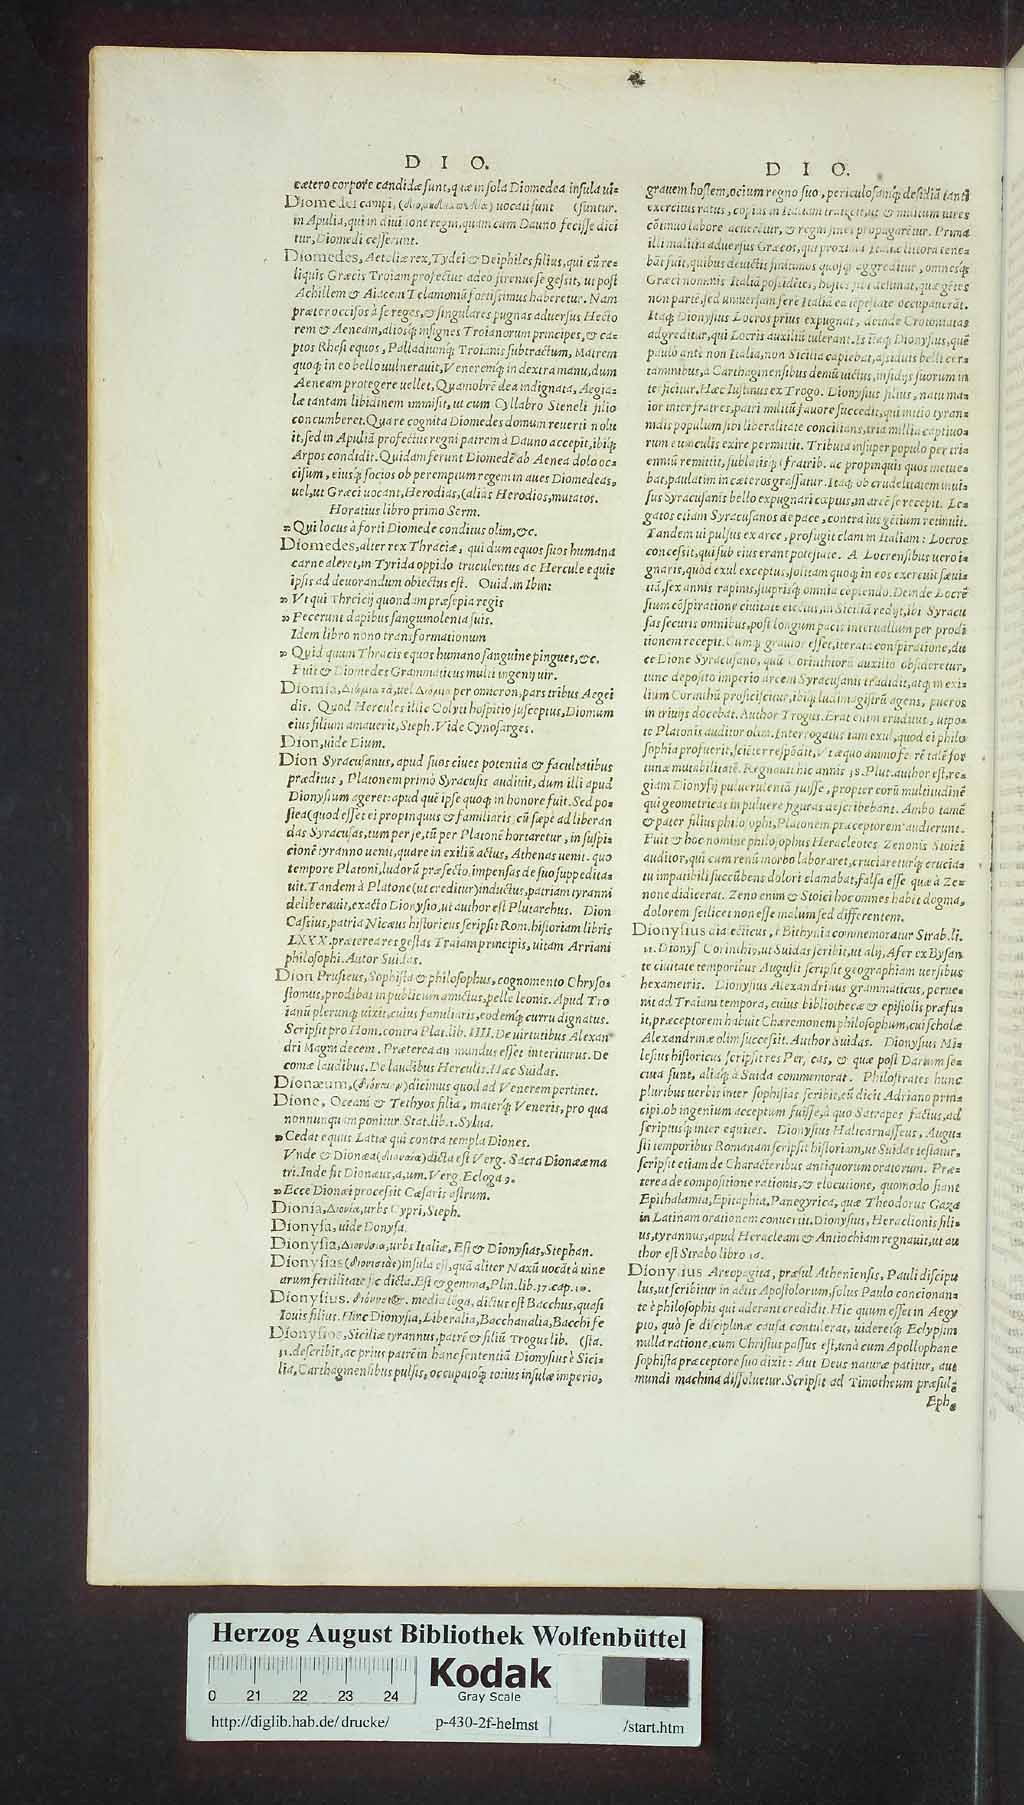 D I O.
cætero corpore candidæ sunt, quæ in sola Diomedea insula ui=
Diomedei campi, uocati sunt (suntur.
in Apulia, qui in diuisione regni, quam cum Dauno fecisse dici
tur, Diomedi cesserunt.
Diomedes, Aetoliæ rex, Tydei & Deiphiles filius, qui cũ re=
liquis Græcis Troiam profectus adeo strenue se gessit, ut post
Achillem & Aiacem Telamoniũ fortissimus haberetur. Nam
præter occisos à se reges, & singulares pugnas aduersus Hecto
rem & Aeneam, aliosq́; insignes Troianorum principes, & ca=
ptos Rhesi equos, Palladiumq́; Troianis subtractum, Martem
quoq; in eo bello uulnerauit, Veneremq́; in dextra manu, dum
Aeneam protegere uellet. Quamobrẽ dea indignata, Aegia=
læ tantam libidinem immisit, ut cum Cyllabro Steneli filio
concumberet. Qua re cognita Diomedes domum reuerti nolu
it, sed in Apuliã profectus regni partem à Dauno accepit, ibiq́;
Arpos condidit. Quidam ferunt Diomedẽ ab Aenea dolo oc=
cisum, eiusq́; socios ob peremptum regem in aues Diomedeas,
uel, ut Græci uocant, Herodias, (aliâs Herodios, mutatos.
Horatius libro primo Serm.
» Qui locus à forti Diomede conditus olim, &c.
Diomedes, alter rex Thraciæ, qui dum equos suos humana
carne aleret, in Tyrida oppido truculentus ac Hercule equis
ipsis ad deuorandum obiectus est. Ouid. in Ibin:
» Vt qui Threicij quondam præsepia regis
» Fecerunt dapibus sanguinolenta suis.
Idem libro nono transformationum
» Quid quum Thracis equos humano sanguine pingues, &c.
Fuit & Diomedes Grammaticus multi ingenij uir.
Diomia, uel per omicron, pars tribus Aegei
dis. Quod Hercules illic Colyti hospitio susceptus, Diomum
eius filium amauerit, Steph. Vide Cynosarges.
Dion, uide Dium.
Dion Syracusanus, apud suos ciues potentia & facultatibus
præditus, Platonem primò Syracusis audiuit, dum illi apud
Dionysium ageret: apud quẽ ipse quoq; in honore fuit. Sed po=
stea (quod esset ei propinquus & familiaris) cũ sæpe ad liberan
das Syracusas, tum per se, tũ per Platonẽ hortaretur, in suspi=
cionẽ tyranno uenit, quare in exiliũ actus, Athenas uenit. quo
tempore Platoni, ludorũ præfecto, impensas de suo suppedita=
uit. Tandem à Platone (ut creditur) inductus, patriam tyranni
de liberauit, exacto Dionysio, ut author est Plutarchus. Dion
Cassius, patria Nicæus historicus scripsit Rom. historiam libris
LXXX. præterea res gestas Traiani principis, uitam Arriani
philosophi. Autor Suidas.
Dion Prusieus, Sophista & philosophus, cognomento Chryso=
stomus, prodibat in publicum amictus, pelle leonis. Apud Tro
ianũ plerunq; uixit, eius familiaris, eodemq́; curru dignatus.
Scripsit pro Hom. contra Plat. lib. IIII. De uirtutibus Alexan
dri Magni decem. Præterea an mundus esset interiturus. De
comæ laudibus. De laudibus Herculis. Hæc Suidas.
Dionæum, dicimus quod ad Venerem pertinet.
Dione, Oceani & Tethyos filia, materq́; Veneris, pro qua
nonnunquam ponitur. Stat. lib. 1. Sylua.
» Cedat equus Latiæ qui contra templa Diones.
Vnde & Dionæa dicta est Verg. Sacra Dionææ ma
tri. Inde fit Dionæus, a, um. Verg. Ecloga 9.
» Ecce Dionæi processit Cæsaris astrum.
Dionia, urbs Cypri, Steph.
Dionysa, uide Donysa.
Dionysia, urbs Italiæ, Est & Dionysias, Stephan.
Dionysias insula est, quã aliter Naxũ uocãt à uine
arum fertilitate sic dicta. Est & gemma, Plin. lib. 37. cap. 10.
Dionysius. media lõga, dictus est Bacchus, quasi
Iouis filius. Hinc Dionysia, Liberalia, Bacchanalia, Bacchi fe
Dionysios, Siciliæ tyrannus, patrẽ & filiũ Trogus lib. (sta.
describit, ac prius patrẽ in hanc sententiã Dionysius è Sici=
lia, Carthaginensibus pulsis, occupatoq́; totius insulæ imperio,
D I O.
grauem hostem, ocium regno suo, periculosamq́; desidiã tanti
exercitus ratus, copias in Italiam traiecit, ut & militum uires
cõtinuo labore acuerentur, & regni fines propagarẽtur. Prima
illi militia aduersus Græcos, qui proxima Italiæ littora tene=
bãt fuit, quibus deuictis finitimos quosq; aggreditur, omnesq́;
Græci nominis Italiã possidẽtes, hostes sibi destinat, quæ gẽtes
non partẽ, sed uniuersam ferè Italiã ea tẽpestate occupauerãt.
Itaq; Dionysius Locros prius expugnat, deinde Crotoniatas
adgreditur, qui Locris auxiliũ tulerant. Is itaq; Dionysius, quẽ
paulo antè non Italia, non Sicilia capiebat, assiduis belli cer=
taminibus, à Carthaginensibus demũ uictus, insidijs suorum in
terficitur. Hæc Iustinus ex Trogo. Dionysius filius, natu ma=
ior inter fratres, patri militũ fauore succedit, qui initio tyran=
nidis populum sibi liberalitate concilians, tria millia captiuo=
rum e uinculis exire permittit. Tributa insuper populo per tri=
enniũ remittit, sublatisq́; fratrib. ac propinquis quos metue=
bat, paulatim in cæteros grassatur. Itaq; ob crudelitatem inui=
sus Syracusanis bello expugnari cœptus, in arcẽ se recepit. Le=
gatos etiam Syracusanos de pace, contra ius gẽtium retinuit.
Tandem ui pulsus ex arce, profugit clam in Italiam: Locros
concessit, qui sub eius erant potestate. A Locrensibus uero i=
gnaris, quòd exul exceptus, solitam quoq; in eos exercuit sæui=
tiã, sex annis rapinis, stuprisq́; omnia copiendo. Deinde Locrẽ
sium cõspiratione ciuitate eiectus, in Siciliã redijt, ibi Syracu
sas securis omnibus, post longum pacis interuallum per prodi
tionem recepit. Cumq́; grauior esset, iterata conspiratione, du
ce Dione Syracusano, quũ Corinthiorũ auxilio obsideretur,
tunc deposito imperio arcem Syracusanis tradidit, atq; in exi=
lium Corinthũ proficiscitur, ibiq́; ludimagistrũ agens, pueros
in triuijs docebat. Author Trogus. Erat enim eruditus, utpo=
te Platonis auditor olim. Interrogatus iam exul, quod ei philo
sophia profuerit, sciẽter respõdit, Vt æquo animo ferrẽ talẽ for
tunæ mutabilitatẽ. Regnauit hic annis 38. Plut. author est, re=
giam Dionysij puluerulentã fuisse, propter eorũ multitudinẽ
qui geometricas in puluere figuras describebant. Ambo tamẽ
& pater filius philosophi, Platonem præceptorem audierunt.
Fuit & hoc nomine philosophus Heracleotes Zenonis Stoici
auditor, qui cum renũ morbo laboraret, cruciareturq́; crucia=
tu impatibili succũbens dolori clamabat, falsa esse quæ à Ze=
none didicerat. Zeno enim & Stoici hoc omnes habẽt dogma,
dolorem scilicet non esse malum sed differentem.
Dionysius dialecticus, è Bithynia commemoratur Strab. li.
12. Dionys. Corinthiꝰ, ut Suidas scribit, ut alij, Afer ex Bysan
te ciuitate temporibus Augusti scripsit geographiam uersibus
hexametris. Dionysius Alexandrinus grammaticus, perue=
nit ad Traiani tempora, cuius bibliothecæ & epistolis præfu=
it, præceptorem habuit Chæremonem philosophum, cui scholæ
Alexandrinæ olim successit. Author Suidas. Dionysius Mi=
lesius historicus scripsit res Persicas, & quæ post Darium se=
cuta sunt, aliaq́; à Suida commemorat. Philostrates hunc
pluribus uerbis inter sophistas scribit, cũ dicit Adriano prin=
cipi ob ingenium acceptum fuisse, à quo Satrapes factus, ad
scriptusq́; inter equites. Dionysius Halicarnasseus, Augu=
sti temporibus Romanam scripsit historiam, ut Suidas testatur,
scripsit etiam de Characteribus antiquorum oratorum. Præ=
terea de compositione rationis, & elocutione, quomodo fiant
Epithalamia, Epitaphia, Panegyrica, quæ Theodorus Gaza
in Latinam orationem conuertit. Dionysius, Heracleonis fili=
us, tyrannus, apud Heracleam & Antiochiam regnauit, ut au
thor est Strabo libro 16.
Dionysius Areopagita, præsul Atheniensis, Pauli discipu
lus, ut scribitur in actis Apostolorum, solus Paulo concionan=
te è philosophis qui aderant credidit. Hic quum esset in Aegy
pto, quò se disciplinæ causa contulerat, uideretq́; Eclypsim
nulla ratione, cum Christus passus est, unà cum Apollophane
sophista præceptore suo dixit: Aut Deus naturæ patitur, aut
mundi machina dissoluetur. Scripsit ad Timotheum præsulẽ
Ephe
Herzog August Bibliothek Wolfenbüttel
0 21 22 23 24
Kodak
Gray Scale
http://diglib.hab.de/drucke/ p-430-2f-helmst /start.htm